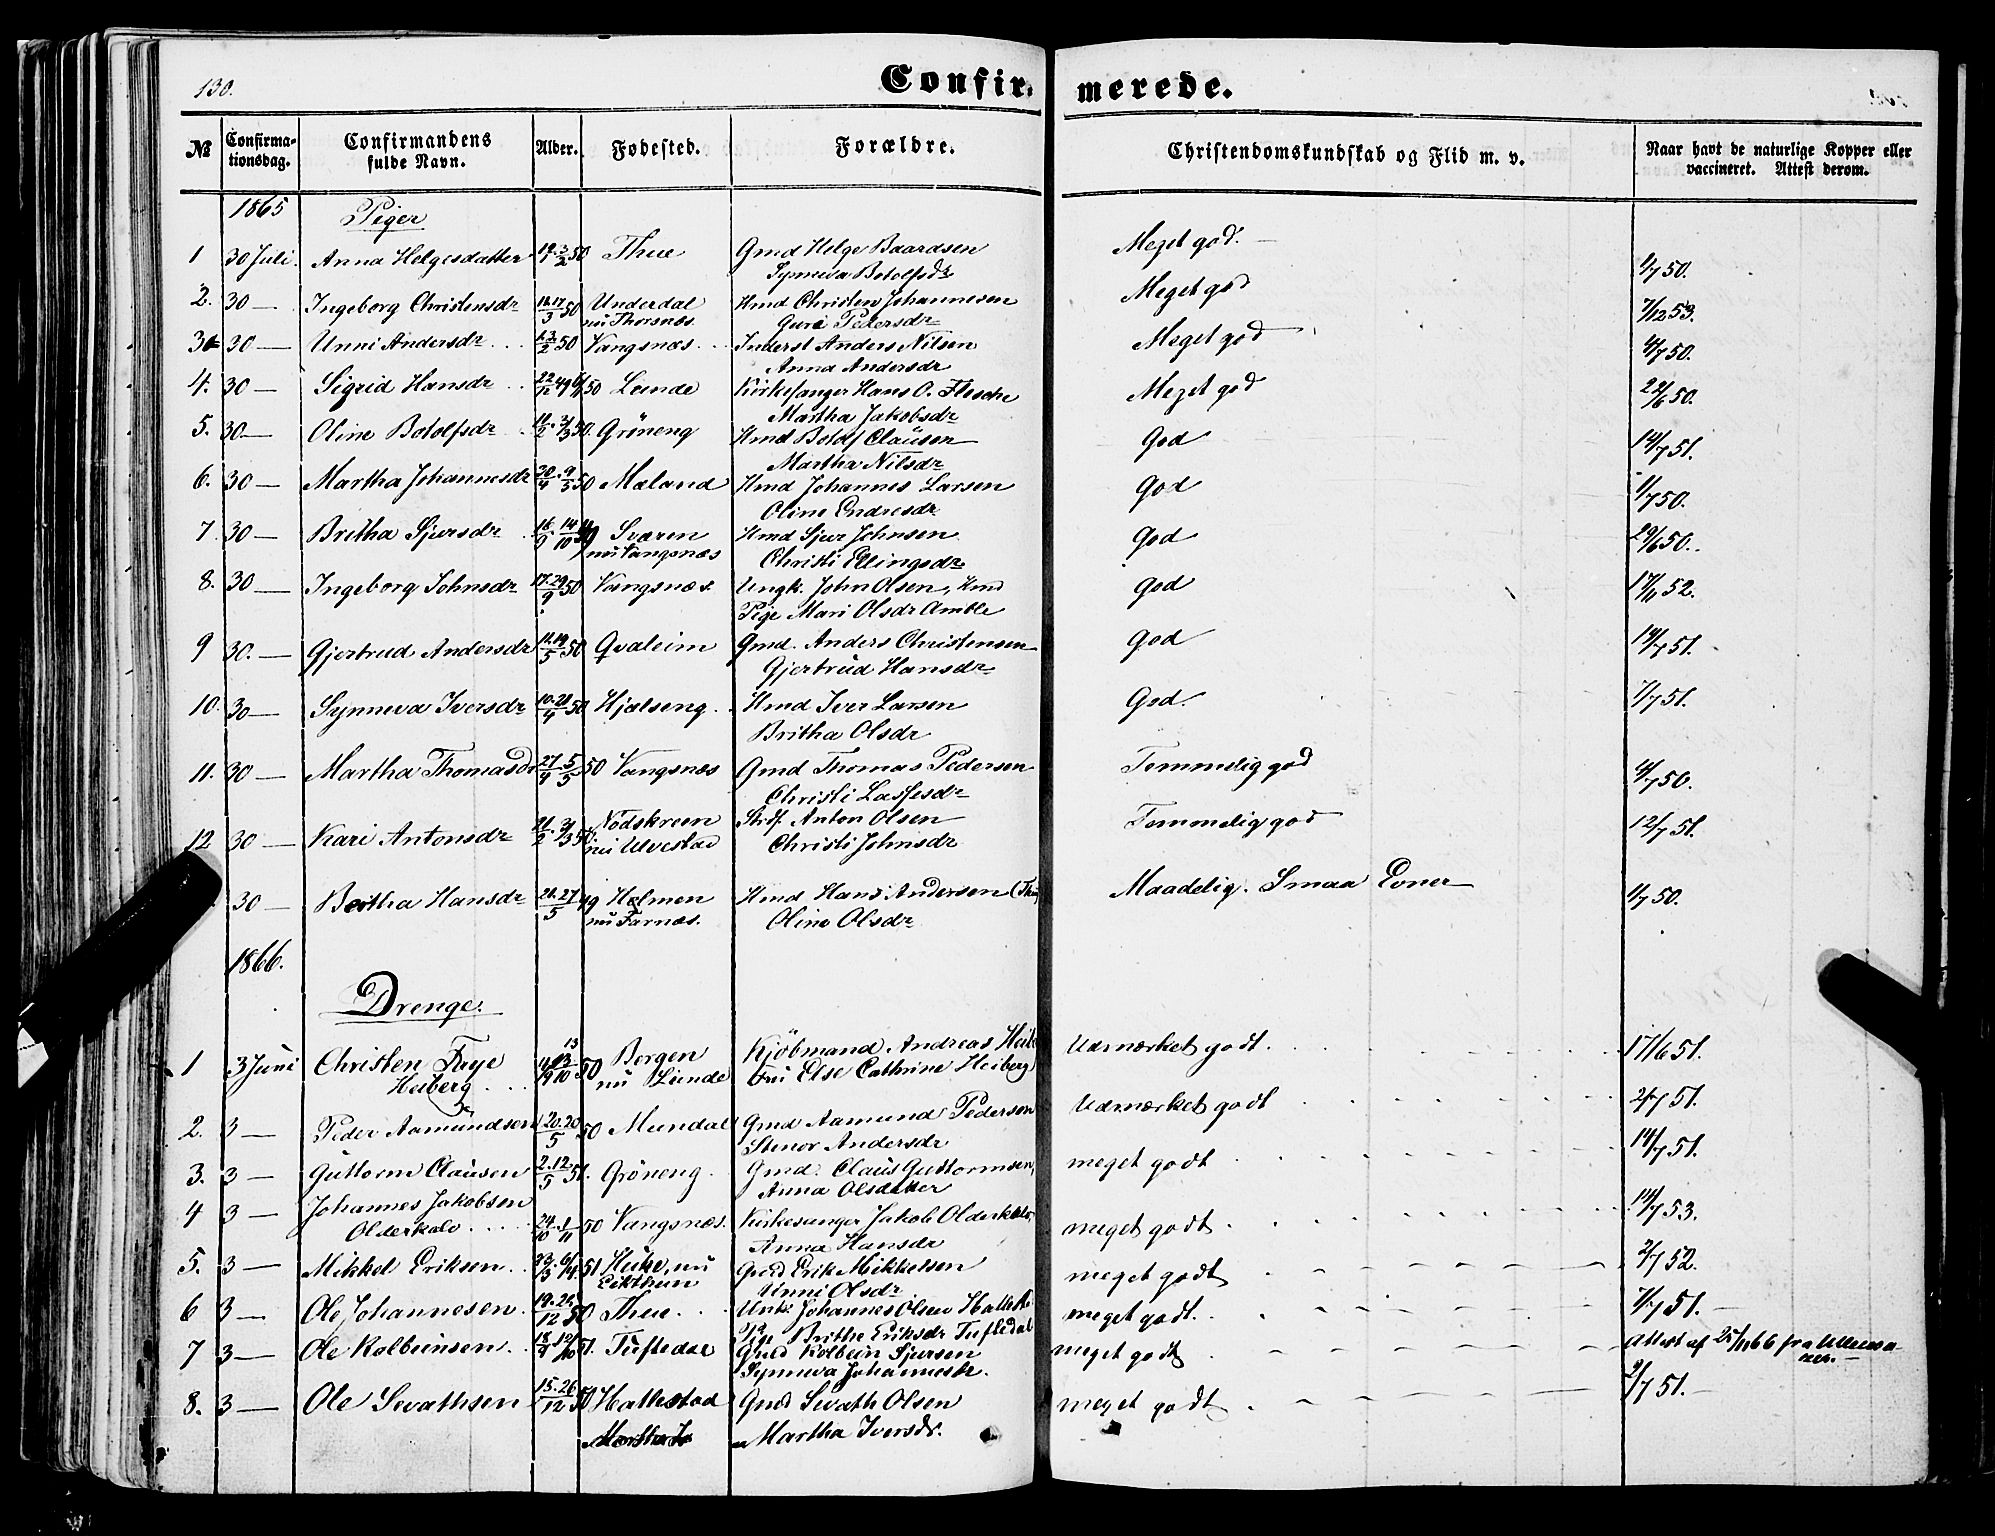 130.
Confirmerede.
№ Confirmationsdag. Confirmandens fulde Navn. Alder. Fødested. Forældre. Christendomskundskab og Flid m. v. Naar havt de naturlige Kopper eller vaccineret. Attest derom.
1865 Piger
1 30 Juli. Anna Helgesdatter 50 Thue Gmd Helge Baardsen Meget god. 1/7 50.
Synneva Botolfsdr
2. 30 — Ingeborg Christensdr 18.17/3 50 Underdal Hmd Christen Johannesen Meget god 7/12 53.
nu Thorsnæs. Guri Pedersdr
3 30 — Unni Andersdr 50 Vangsnæs Inderst Anders Nilsen Meget god 4/7 50.
Anna Andersdr
4. 30 — Sigrid Hansdr Lunde Kirkesanger Hans O. Flesche Meget god 22/6 50.
Martha Jakobsdr
5. 30 — Oline Botolfsdr 50. Gröneng Hmd Botolf Clausen God 14/7 51.
Martha Nilsdr
6. 30 — Martha Johannesdr 50 Mæland Hmd Johannes Larsen God 1/7 50.
Oline Endresdr
7. 30 — Britha Sjursdr Sværen Hmd Sjur Johnsen God 29/6 50.
nu Vangsnæs Christi Ellingsdr
8. 30 — Ingeborg Johnsdr 17.29/9 50 Vangsnæs. Ungk. John Olsen, Hmd God 17/11 52.
Pige Mari Olsdr Amble
9 30. — Gjertrud Andersdr 11.19/5 50 Qvaleim Gmd. Anders Christensen God 19/7 51.
Gjertrud Hansdr
10. 30 — Synneva Iversdr 10.21/4 50 Hjelseng. Hmd Iver Larsen God. 7/7 51.
Britha Olsdr
11. 30 — Martha Thomasdr 27/4 5/5 50 Vangsnæs Gmd Thomas Pedersen Temmelig god 4/7 50.
Christi Lassesdr
12 30 — Kari Antonsdr Nödskreen Anton Olsen Temmelig god 12/7 51.
nu Ulvestad Christi Johnsdr
30 — Britha Hansdr 49 Holmen Hmd Hans Andersen (Thue) Maadelig. Smaa Evner 1/7 50.
nu Farnæs. Oline Olsdr
1866.
Drenge.
1 3 Juni Christen Frye 50 Bergen Kjöbmand Andreas Heib Udmærket godt. 17/6 51.
Heiberg nu Lunde Fru Else Cathrine Heiberg
2. 3 — Peder Aamundsen 20.20/5 50 Mundal Gmd Aamund Pedersen Udmærket godt 2/7 51.
Stenor Andersdr
3. 3 — Guttorm Clausen 2.12/5 51. Gröneng. Gmd. Claus Guttormsen, meget godt 14/7 51.
Anna Olsdatter
4 3 — Johannes Jakobsen
Olderkalv 24/10 1/11 50 Vangsnæs. Kirkesanger Jakob Olderkalv, meget godt 14/7 53.
Anna Hansdr
5. 3 — Mikkel Eriksen 51 nu Gmd Erik Mikkelsen meget godt 2/7 52.
Eikthun Unni Olsdr
6 3 — Ole Johannesen 19.26/12 50 Thue Johannes Olsen meget godt. 7/7 51.
Pige Brithe Eriksdr Tuftedal
7 3 — Ole Kolbeinsen 51. Tuftedal Gmd Kolbein Sjursen meget godt Attest af 25/1166 fra
Synneva Johannesdr.
8. 3 — Ole Sevathsen 15.26/12 50 Hallestad Gmd Sevath Olsen meget godt 2/7 51.
Martha I Martha Iversdr.